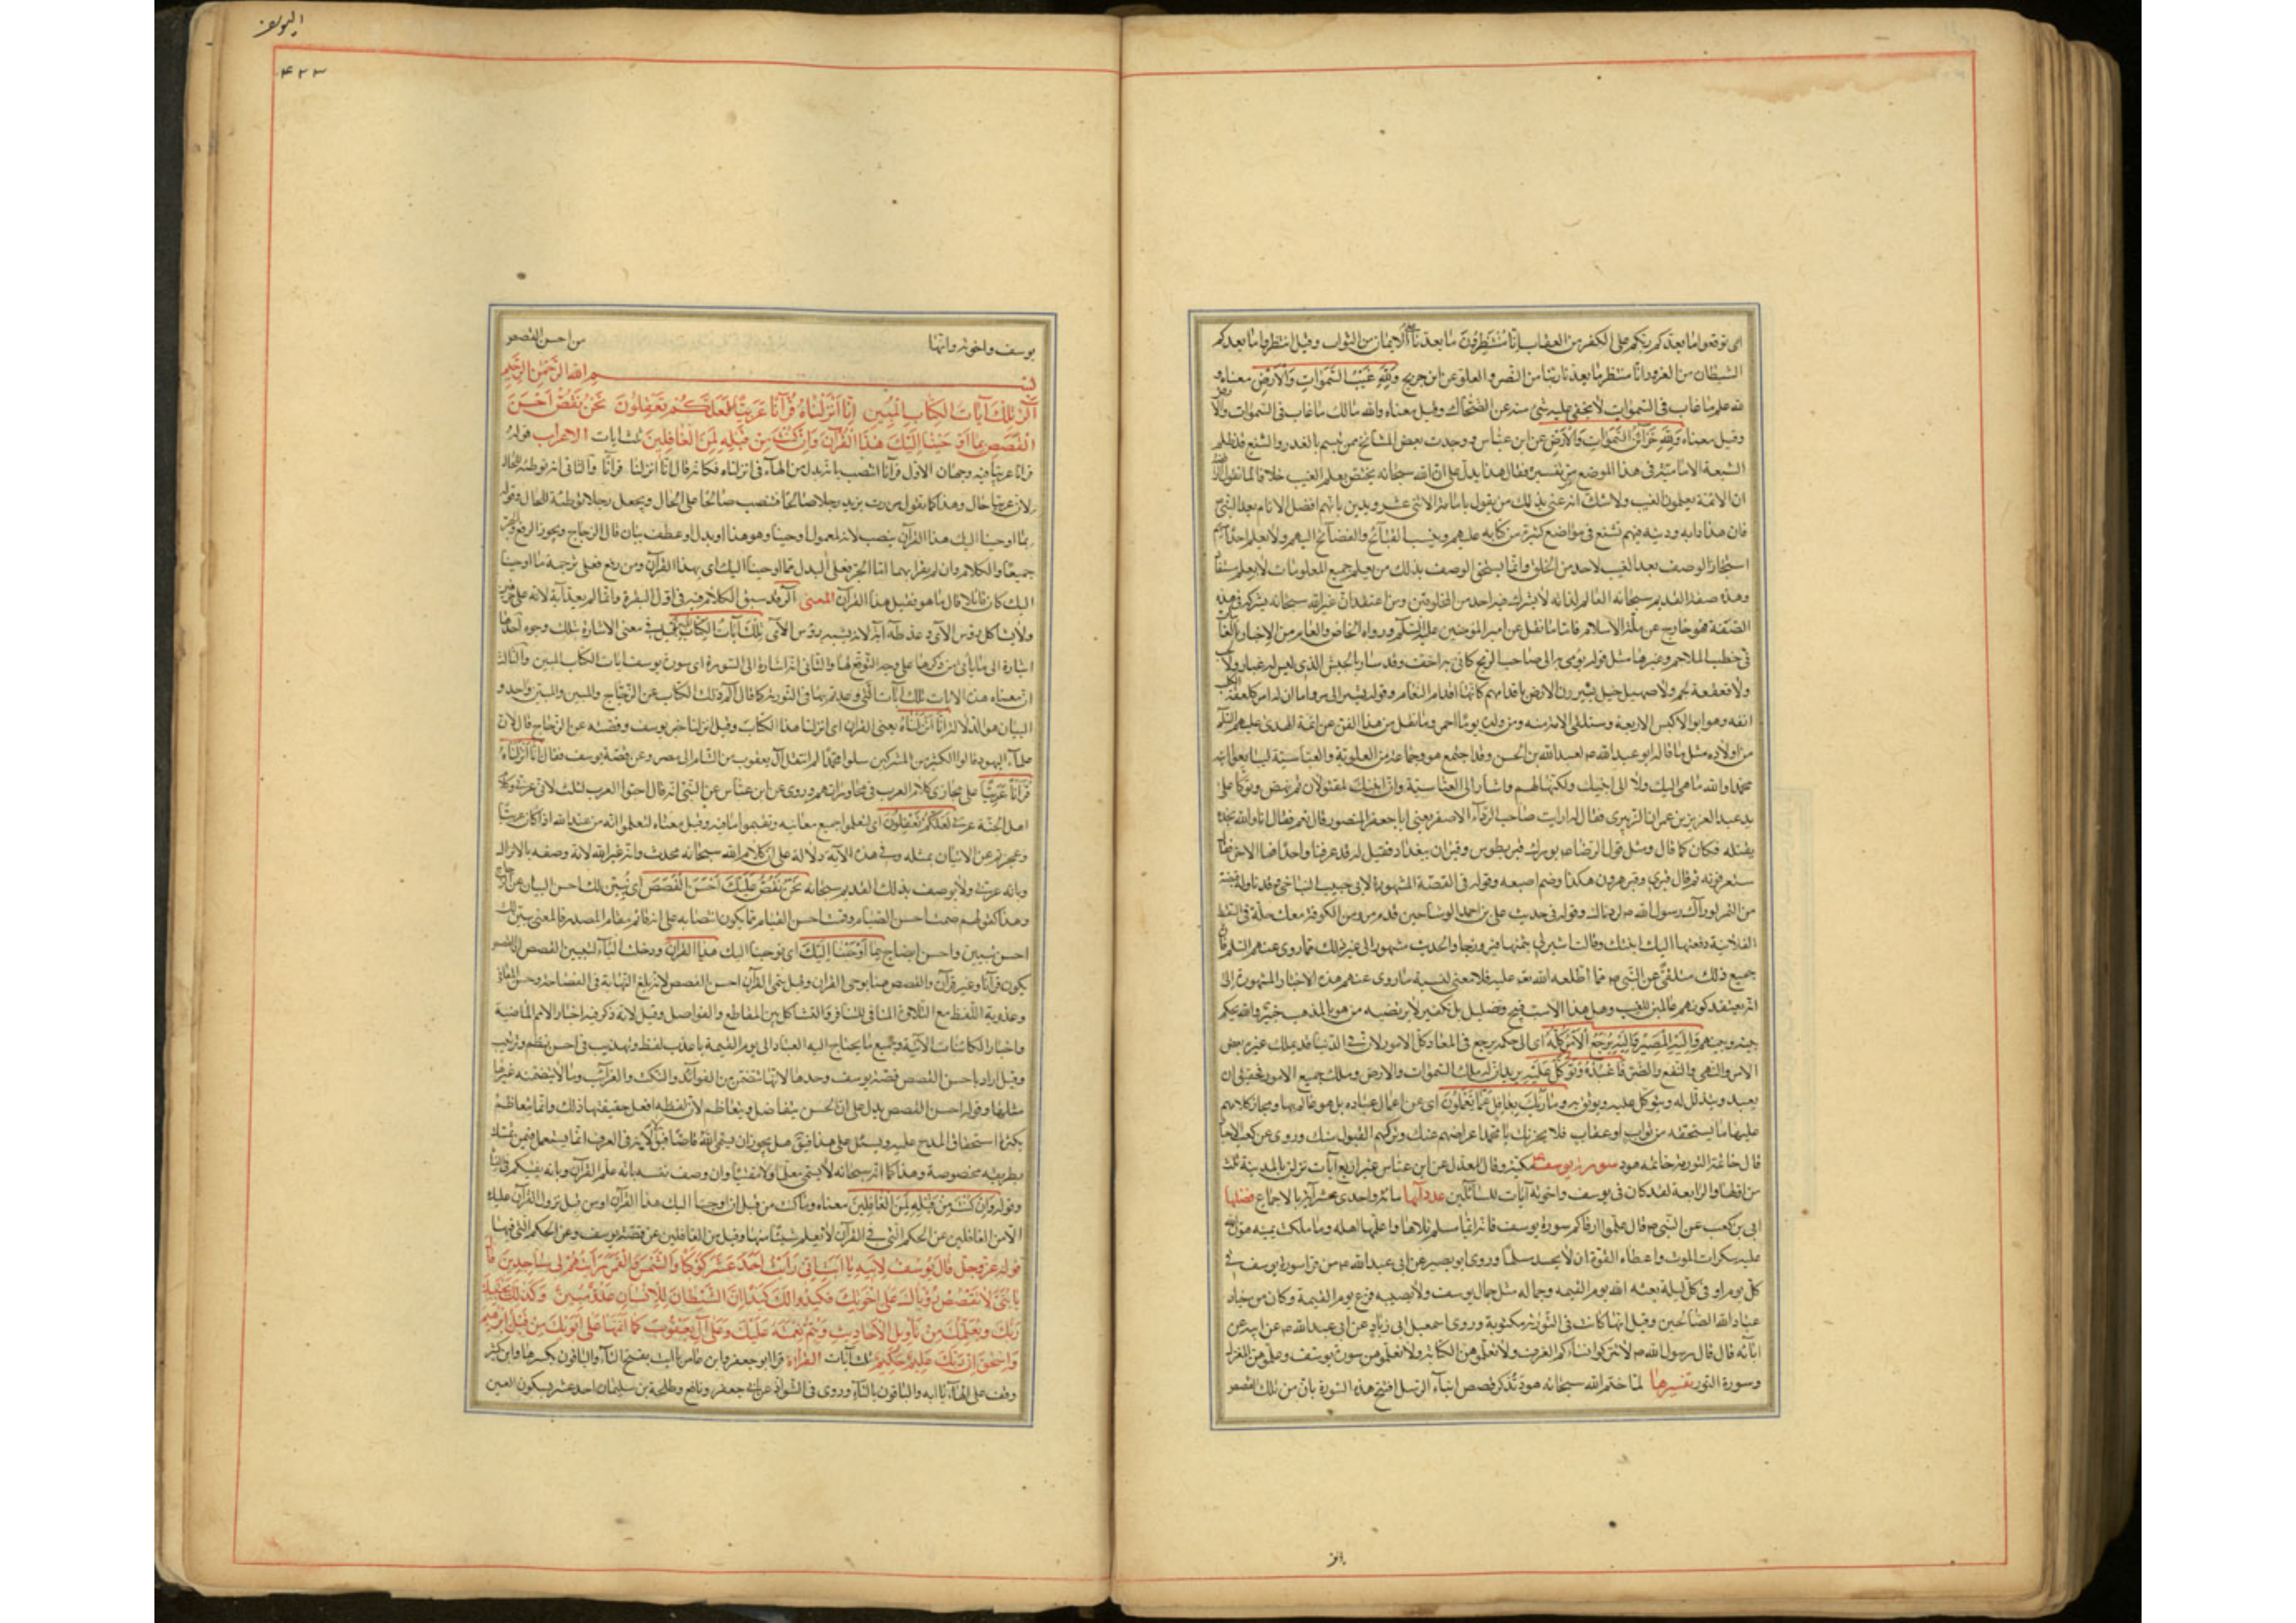 اى توقعوا ما بعدكم ربكم على الكفر من العقاب إِنَّا مُنْتَظِرُونَ ما بعدنا على الايمان من الثواب وقيل انتظروا ما بعدكم
الشيطان من الغرور انا منتظر ما بعدنا ربنا من النصر والعلو عن ابن جريج وَلِلَّهِ غَيْبُ السَّمٰوَاتِ وَالْأَرْضِ معناه و
لله علم ما غاب فى السموات لا يخفى عليه شئ منه عن الضحاك وقيل معناه والله مالك ما غاب فى السموات والا
وقيل معناه وَلِلَّهِ خَزَائِنُ السَّمٰوَاتِ وَالْأَرْضِ عن ابن عباس ووجدت بعض المشائخ ممن يتسم بالعدل والتشنيع قد ظلم
الشيعة الامامية فى هذا الموضع من تفسيره فقال هذا يدل على ان الله سبحانه يختص بعلم الغيب خلافا لما تقول
ان الائمة يعلمون الغيب ولا شك انه عنى بذلك من يقول بامامة الاثنى عشر ويدين بانهم افضل الانام بعد النبى
فان هذا دابه وديدنه فيهم تشنع فى مواضع كثيرة من كتابه عليهم وينسب القبائح والفضائح اليهم ولا نعلم احدا منهم
استجاز الوصف بعلم الغيب لاحد من الخلق وانما يستحق الوصف بذلك من يعلم جميع المعلومات لا بعلم مستفاد
وهذه صفة القديم سبحانه العالم لذاته لا يشركه فيه احد من المخلوقين ومن اعتقد ان غير الله سبحانه يشركه فى هذه
الصفة فهو خارج عن ملة الاسلام فاما ما نقل عن امير المؤمنين عليه السلام ورواه الخاص والعام من الاخبار بالغائبات
فى خطب الملاحم وغيرها مثل قوله يومى به الى صاحب الزنج كانى به يا احنف وقد سار بالجيش الذى ليس له غبار ولا
ولا قعقعة لجم ولا صهيل خيل يثيرون الارض باقدامهم كانها اقدام النعام وقوله يشير الى مروان اما ان له امرة كلعقة الكلب
انفه وهو ابو الاكبش الاربعة وستلقى الامة منه ومن ولده يوما احمر وما نقل من هذا الفن عن ائمة الهدى عليهم السلم
من اولاده مثل ما قاله ابو عبد الله ع لعبد الله بن الحسن وقد اجتمع هو وجماعة من العلوية والعباسية ليبايعوا ابنه
محمدا والله ما هى اليك ولا الى ابنيك ولكنها لهم واشار الى العباسية وان ابنيك لمقتولان ثم نهض وتوكأ على
يد عبد العزيز بن عمران الزهرى فقال له ارايت صاحب الرداء الاصفر يعنى ابا جعفر المنصور قال نعم فقال انا والله نجده
يقتله فكان كما قال ومثل قول الرضا ع بورك قبر بطوس وقبران ببغداد فقيل له قد عرفنا واحدا فما الاخر فقال
ستعرفونه ثم قال قبرى وقبر هرون هكذا وضم اصبعيه وقوله فى القصة المشهورة لابى حبيب النباجى وقد ناوله قبضة
من التمر لو زادك رسول الله ص لزدناك وقوله فى حديث على بن احمد الوشا حين قدم مرو من الكوفة معك حلة فى السفط
الفلانية دفعتها اليك ابنتك وقالت اشتر لى بثمنها فيروزجا والحديث مشهور الى غير ذلك مما روى عنهم السلم فان
جميع ذلك متلقى عن النبى ص مما اطلعه الله تعه عليه فلا معنى لنسبة ما روى عنهم هذه الاخبار المشهورة الى
انه يعتقد كونهم عالمين للغيب وهل هذا الا سب قبيح وتضليل بل تكفير لا يرتضيه من هو بالمذهب خبير والله يحكم
بينه وبينهم وَإِلَيْهِ الْمَصِيرُ وَإِلَيْهِ يُرْجَعُ الْأَمْرُ كُلُّهُ اى الى حكمه يرجع فى المعاد كل الامور لان فى الدنيا قد يملك غيره بعض
الامر والنهى والنفع والضر فَاعْبُدْهُ وَتَوَكَّلْ عَلَيْهِ يريد ان له ملك السموات والارض وملك جميع الامور فحقيق ان
يعبد ويتذلل له ويتوكل عليه ويوثق به وَمَا رَبُّكَ بِغَافِلٍ عَمَّا تَعْمَلُونَ اى عن اعمال عباده بل هو عالم بها ومجاز كلا منهم
عليها ما يستحقه من ثواب او عقاب فلا يحزنك يا محمد اعراضهم عنك وتركهم القبول منك وروى عن كعب الاحبار
قال خاتمة التورية خاتمة هود سورة يوسف مكية وقال المعدل عن ابن عباس غير اربع آيات نزلن بالمدينة ثلث
من اولها والرابعة لقد كان فى يوسف واخوته آيات للسائلين عدد آيها مائة واحدى عشر آية بالاجماع فضلها
ابى بن كعب عن النبى ص قال علموا ارقاكم سورة يوسف فانه ايما مسلم تلاها وعلمها اهله وما ملكت يمينه هون الله
عليه سكرات الموت واعطاه القوة ان لا يحسد مسلما وروى ابو بصير عن ابى عبد الله ع من قرا سورة يوسف فى
كل يوم او فى كل ليلة بعثه الله يوم القيمة وجماله مثل جمال يوسف ولا يصيبه فزع يوم القيمة وكان من خيار
عباد الله الصالحين وقيل انها كانت فى التورية مكتوبة وروى اسمعيل ابى زياد عن ابى عبد الله ع عن ابيه عن
ابائه قال قال رسول الله ص لا تنزلوا نساءكم الغرف ولا تعلموهن الكتابة ولا تعلموهن سورة يوسف وعلموهن المغزل
وسورة النور تفسيرها لما ختم الله سبحانه هود بذكر قصص انبياء الرسل افتتح هذه السورة بان من تلك القصص
اليوسف
۴۲۳
يوسف واخوته وانها من احسن القصص
بِسْمِ اللهِ الرَّحْمٰنِ الرَّحِيمِ
الٓرٰ تِلْكَ آيَاتُ الْكِتَابِ الْمُبِينِ إِنَّا أَنْزَلْنَاهُ قُرْآنًا عَرَبِيًّا لَعَلَّكُمْ تَعْقِلُونَ نَحْنُ نَقُصُّ أَحْسَنَ
الْقَصَصِ بِمَا أَوْحَيْنَا إِلَيْكَ هٰذَا الْقُرْآنَ وَإِنْ كُنْتَ مِنْ قَبْلِهِ لَمِنَ الْغَافِلِينَ ثلث ايات الاعراب قوله
قرانا عربيا فيه وجهان الاول قرآنا انتصب بانه بدل من الهاء فى انزلناه فكانه قال انا انزلنا قرآنا والثانى انه توطئة للحال
لان عربيا حال وهذا كما تقول مررت بزيد رجلا صالحا فتنصب صالحا على الحال وتجعل رجلا توطئة للحال وقوله
بما اوحينا اليك هذا القرآن ينصب لانه معمول اوحينا وهو هذا او بدل او عطف بيان قال الزجاج ويجوز الرفع والجر
جميعا والكلام وان لم يقرا بهما اما الجر فعلى البدل مما اوحينا اليك اى بهذا القرآن ومن رفع فعلى ترجمة ما اوحينا
اليك كان قائلا قال ما هو فقيل هذا القرآن المعنى الٓرٰ قد سبق الكلام فيه فى اول البقرة وانما لم يعد آية لانه على حرفين
ولا يشاكل رؤس الآى وعد طه آية لانه يشبه رؤس الآى تِلْكَ آيَاتُ الْكِتَابِ الْمُبِينِ قيل فى معنى الاشارة بتلك وجوه احدها
اشارة الى ما ياتى من ذكرها على وجه التوقع لها والثانى انه اشارة الى السورة اى سورة يوسف ايات الكتاب المبين والثالث
ان معناه هذه الايات تلك الايات التى وعدتم بها فى التورية كما قال الم ذلك الكتاب عن الزجاج والمبين والمبين واحد و
البيان هو الدلالة إِنَّا أَنْزَلْنَاهُ يعنى القران اى انزلنا هذا الكتاب وقيل انزلنا خبر يوسف وقصته عن الزجاج قال لان
علماء اليهود قالوا لكثير من المشركين سلوا محمدا لم انتقل آل يعقوب من الشام الى مصر وعن قصة يوسف فقال إِنَّا أَنْزَلْنَاهُ
قُرْآنًا عَرَبِيًّا على مجازى كلام العرب فى محاوراتهم وروى عن ابن عباس عن النبى انه قال احبوا العرب لثلث لانى عربى وكلام
اهل الجنة عربى لَعَلَّكُمْ تَعْقِلُونَ اى لتعلموا جميع معانيه وتفهموا ما فيه وقيل معناه لتعلموا انه من عند الله اذ كان عربيا
وعجزتم عن الاتيان بمثله وفى هذه الآية دلالة على ان كلام الله سبحانه محدث وانه غير الله لانه وصفه بالانزال
وبانه عربى ولا يوصف بذلك القديم سبحانه نَحْنُ نَقُصُّ عَلَيْكَ أَحْسَنَ الْقَصَصِ اى نبين لك احسن البيان عن الزجاج
وهذا كقولهم صمت احسن الصيام وقمت احسن القيام مما يكون انتصابه على انه قائم مقام المصدر فالمعنى نبين لك
احسن تبيين واحسن ايضاح بِمَا أَوْحَيْنَا إِلَيْكَ اى بوحينا اليك هذا القرآن ودخلت الباء لتبيين القصص ان القصص
يكون قرآنا وغير قرآن والقصص هنا بوحى القران وقيل سمى القرآن احسن القصص لانه بلغ النهاية فى الفصاحة وحسن المعانى
وعذوبة اللفظ مع التلاوم المنافى للتنافر والتشاكل بين المقاطع والفواصل وقيل لانه ذكر فيه اخبار الامم الماضية
واخبار الكائنات الآتية وجميع ما يحتاج اليه العباد الى يوم القيمة باعذب لفظ وتهذيب فى احسن نظم وترتيب
وقيل اراد باحسن القصص قصة يوسف وحدها لانها تتضمن من الفوائد والنكت والغرائب وما لا يتضمنه غيرها
مثلها وقوله احسن القصص يدل على ان الحسن يتفاضل ويتعاظم لان لفظة افعل حقيقتها ذلك وانما يتعاظم
بكثرة استحقاق المدح عليه ويسئل على هذا فيق هل يجوز ان يسمى الله قاصا فيق لا لانه فى العرف انما يستعمل فيمن تمسك
بطريقة مخصوصة وهذا كما انه سبحانه لا يسمى معلما ولا مفتيا وان وصف نفسه بانه علم القرآن وبانه يفتيكم فى النساء
وقوله وَإِنْ كُنْتَ مِنْ قَبْلِهِ لَمِنَ الْغَافِلِينَ معناه وما كنت من قبل ان اوحينا اليك هذا القرآن اوس من قبل نزول القرآن عليك
الا من الغافلين عن الحكم التى فى القرآن لا تعلم شيئا منها وقيل من الغافلين عن قصة يوسف وعن الحكم التى فيها
قوله عز وجل قَالَ يُوسُفُ لِأَبِيهِ يَا أَبَتِ إِنِّي رَأَيْتُ أَحَدَ عَشَرَ كَوْكَبًا وَالشَّمْسَ وَالْقَمَرَ رَأَيْتُهُمْ لِي سَاجِدِينَ قَالَ
يَا بُنَيَّ لَا تَقْصُصْ رُؤْيَاكَ عَلَى إِخْوَتِكَ فَيَكِيدُوا لَكَ كَيْدًا إِنَّ الشَّيْطَانَ لِلْإِنْسَانِ عَدُوٌّ مُبِينٌ وَكَذٰلِكَ يَجْتَبِيكَ
رَبُّكَ وَيُعَلِّمُكَ مِنْ تَأْوِيلِ الْأَحَادِيثِ وَيُتِمُّ نِعْمَتَهُ عَلَيْكَ وَعَلَى آلِ يَعْقُوبَ كَمَا أَتَمَّهَا عَلَى أَبَوَيْكَ مِنْ قَبْلُ إِبْرٰهِيمَ
وَإِسْحٰقَ إِنَّ رَبَّكَ عَلِيمٌ حَكِيمٌ ثلث آيات القراءة قرا ابو جعفر وابن عامر يا ابت بفتح التاء والباقون بكسرها وابن كثير
وقف على الهاء يا ابه والباقون بالتاء وروى فى الشواذ عن ابى جعفر ونافع وطلحة بن سليمان احد عشر بسكون العين